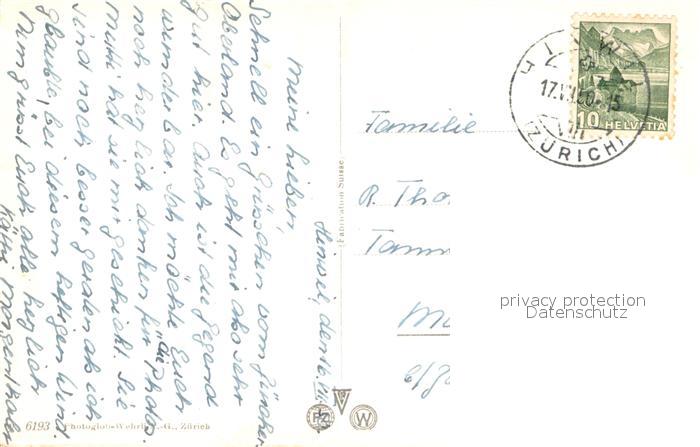 Hinwil, den 16.
Meine Lieben,
Schnell ein Grüsschen vom Zürcher
Oberland. Es geht mir also sehr
gut hier. Auch ist die Gegend
wunderbar. Ich möchte Euch
noch herzlich danken für die Photos.
Mutti hat sie mir geschickt. Sie
sind noch besser geraten als ich
glaubte, bei diesem heftigen Wind.
Nun grüsst Euch alle herzlich
Käthi Morgenthaler
Familie
R. Tho
Tann
M
c/
(Fabrication Suisse)
10 HELVETIA
17.VII.50-15
(ZÜRICH)
privacy protection
Datenschutz
PZ
W
6193 Photoglob-Wehrli A.-G., Zürich